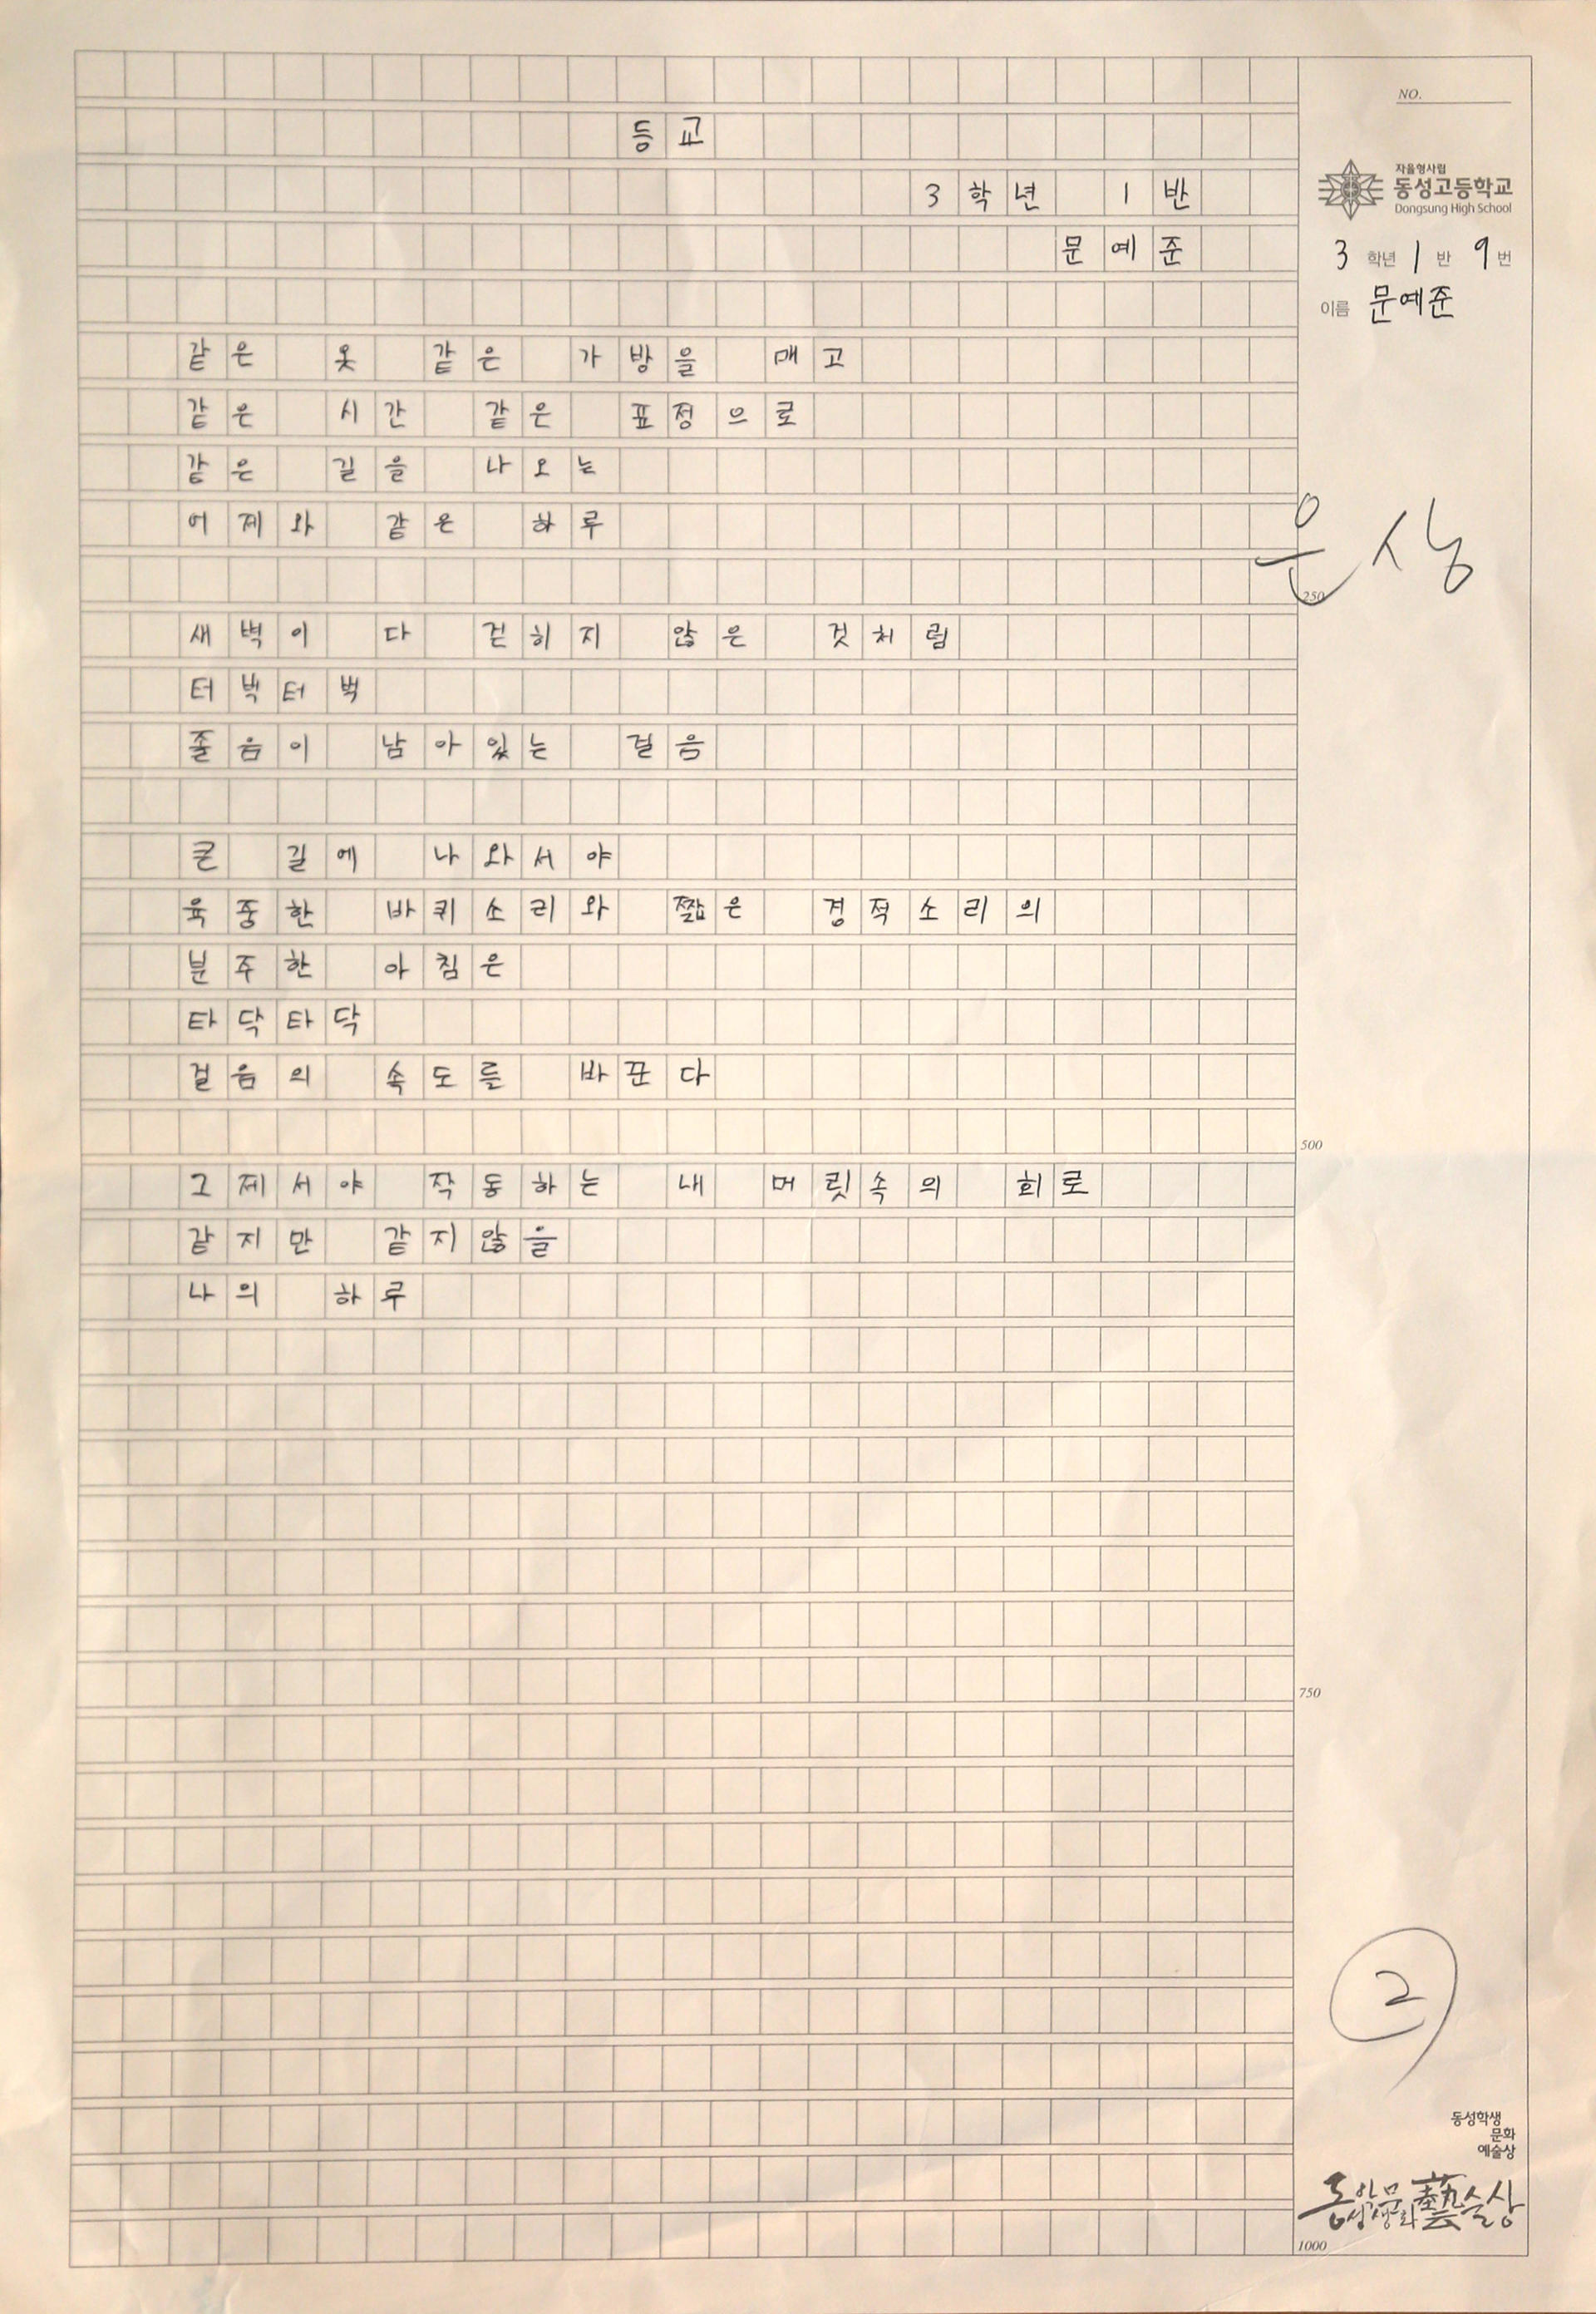 NO.
등교
자율형사립
동성고등학교
Dongsung High School
3학년 1반
문예준
3 학년 1 반 9 번
이름 문예준
같은 옷 같은 가방을 매고
같은 시간 같은 표정으로
같은 길을 나오는
어제와 같은 하루
은상
250
새벽이 다 걷히지 않은 것처럼
터벅터벅
졸음이 남아있는 걸음
큰 길에 나와서야
육중한 바퀴소리와 짧은 경적소리의
분주한 아침은
타닥타닥
걸음의 속도를 바꾼다
500
그제서야 작동하는 내 머릿속의 회로
같지만 같지않을
나의 하루
750
2
동성학생
문화
예술상
동성학생문화藝술상
1000